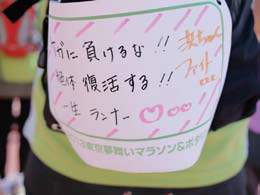 ケガに負けるな!!
絶体復活する!!
一生ランナー
ちゃん
ファイト
2013東京夢舞いマラソン&ポタ